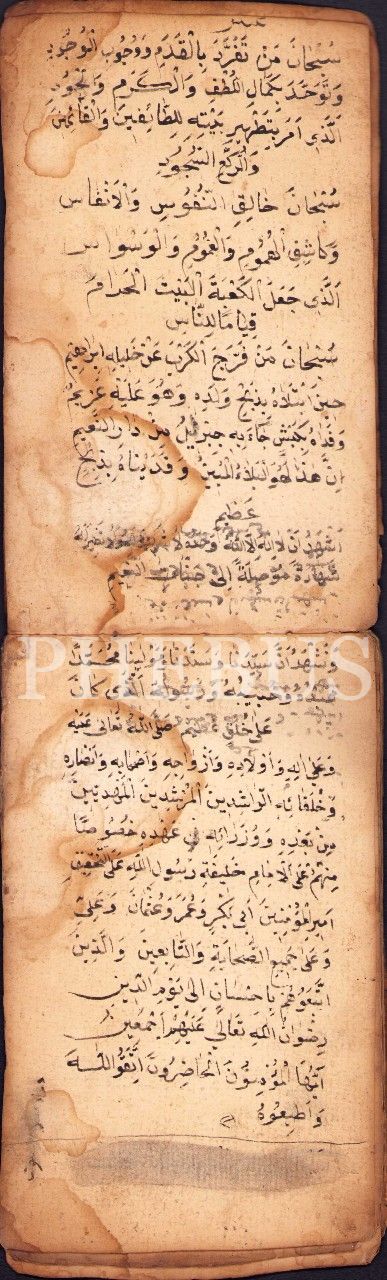 سُبْحَانَ مَنْ تَفَرَّدَ بِالْقِدَمِ وَوُجُوبِ الْوُجُودِ
وَتَوَحَّدَ بِكَمَالِ اللُّطْفِ وَالْكَرَمِ وَالْجُودِ
اَلَّذِى اَمَرَ بِتَطْهِيرِ بَيْتِهِ لِلطَّائِفِينَ وَالْقَائِمِينَ
وَالرُّكَّعِ السُّجُودِ
سُبْحَانَ خَالِقِ النُّفُوسِ وَالْاَنْفَاسِ
وَكَاشِفِ الْهُمُومِ وَالْغُمُومِ وَالْوَسْوَاسِ
اَلَّذِى جَعَلَ الْكَعْبَةَ الْبَيْتَ الْحَرَامَ
قِيَامًا لِلنَّاسِ
سُبْحَانَ مَنْ فَرَّجَ الْكَرْبَ عَنْ خَلِيلِهِ اِبْرَاهِيمَ
حِينَ ابْتَلَاهُ بِذَبْحِ وَلَدِهِ وَهُوَ عَلَيْهِ
وَفَدَاهُ بِكَبْشٍ جَاءَ بِهِ جِبْرِيلُ مِنْ دَارِ النَّعِيمِ
اِنَّ هٰذَا لَهُوَ الْبَلَاءُ الْمُبِينُ وَفَدَيْنَاهُ بِذِبْحٍ
عَظِيمٍ
اَشْهَدُ اَنْ لَا اِلٰهَ اِلَّا اللهُ وَحْدَهُ لَا شَرِيكَ لَهُ
شَهَادَةً مُوصِلَةً اِلٰى جَنَّاتِ النَّعِيمِ
وَنَشْهَدُ اَنَّ سَيِّدَنَا وَسَنَدَنَا مُحَمَّدًا
عَبْدُهُ وَحَبِيبُهُ وَرَسُولُهُ الَّذِى كَانَ
عَلٰى خُلُقٍ عَظِيمٍ صَلَّى اللهُ تَعَالٰى عَلَيْهِ
وَعَلٰى اٰلِهِ وَاَوْلَادِهِ وَاَزْوَاجِهِ وَاَصْحَابِهِ وَاَنْصَارِهِ
وَخُلَفَائِهِ الرَّاشِدِينَ الْمُرْشِدِينَ الْمَهْدِيِّينَ
مِنْ بَعْدِهِ وَوُزَرَائِهِ فِى عَهْدِهِ خُصُوصًا
مِنْهُمْ عَلَى الْاِمَامِ خَلِيفَةِ رَسُولِ اللهِ عَلَى التَّحْقِيقِ
اَمِيرِ الْمُؤْمِنِينَ اَبِى بَكْرٍ وَعُمَرَ وَعُثْمَانَ وَعَلِىٍّ
وَعَلٰى جَمِيعِ الصَّحَابَةِ وَالتَّابِعِينَ وَالَّذِينَ
اتَّبَعُوهُمْ بِاِحْسَانٍ اِلٰى يَوْمِ الدِّينِ
رِضْوَانُ اللهِ تَعَالٰى عَلَيْهِمْ اَجْمَعِينَ
اَيُّهَا الْمُؤْمِنُونَ الْحَاضِرُونَ اِتَّقُوا اللهَ
وَاَطِيعُوهُ
PHEBUS